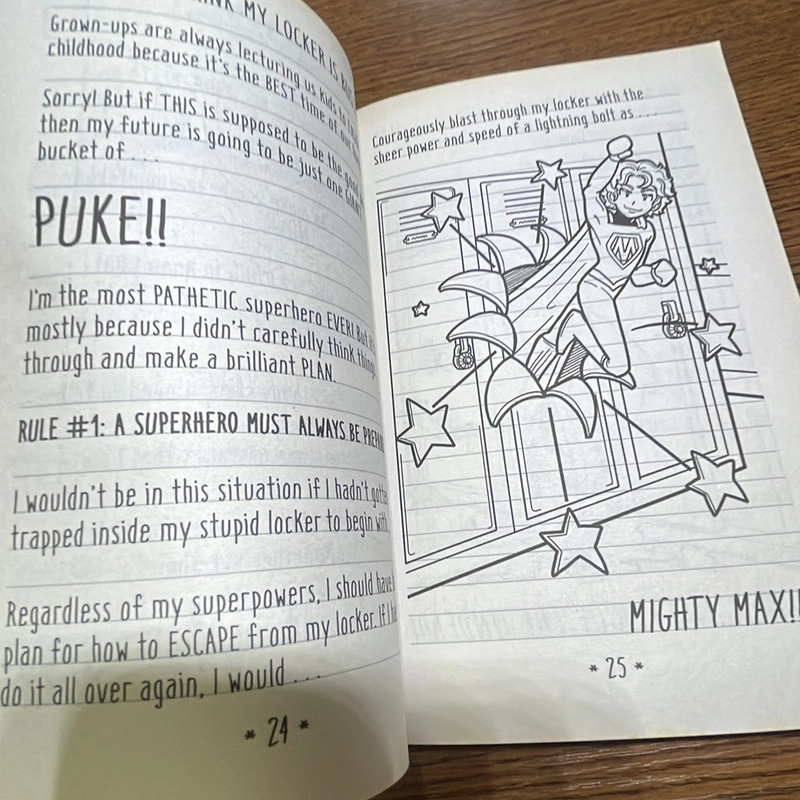 MY LOCKER IS
Grown-ups are always lecturing us kids to
childhood because it's the BEST time of our
Sorry! But if THIS is supposed to be the good
then my future is going to be just one GIANT
bucket of . . .
PUKE!!
I'm the most PATHETIC superhero EVER! But
mostly because I didn't carefully think things
through and make a brilliant PLAN.
RULE #1: A SUPERHERO MUST ALWAYS BE
I wouldn't be in this situation if I hadn't gotten
trapped inside my stupid locker to begin with.
Regardless of my superpowers, I should have
plan for how to ESCAPE from my locker. If I
do it all over again, I would . . .
* 24 *
Courageously blast through my locker with the
sheer power and speed of a lightning bolt as . . .
M
MIGHTY MAX!!
* 25 *